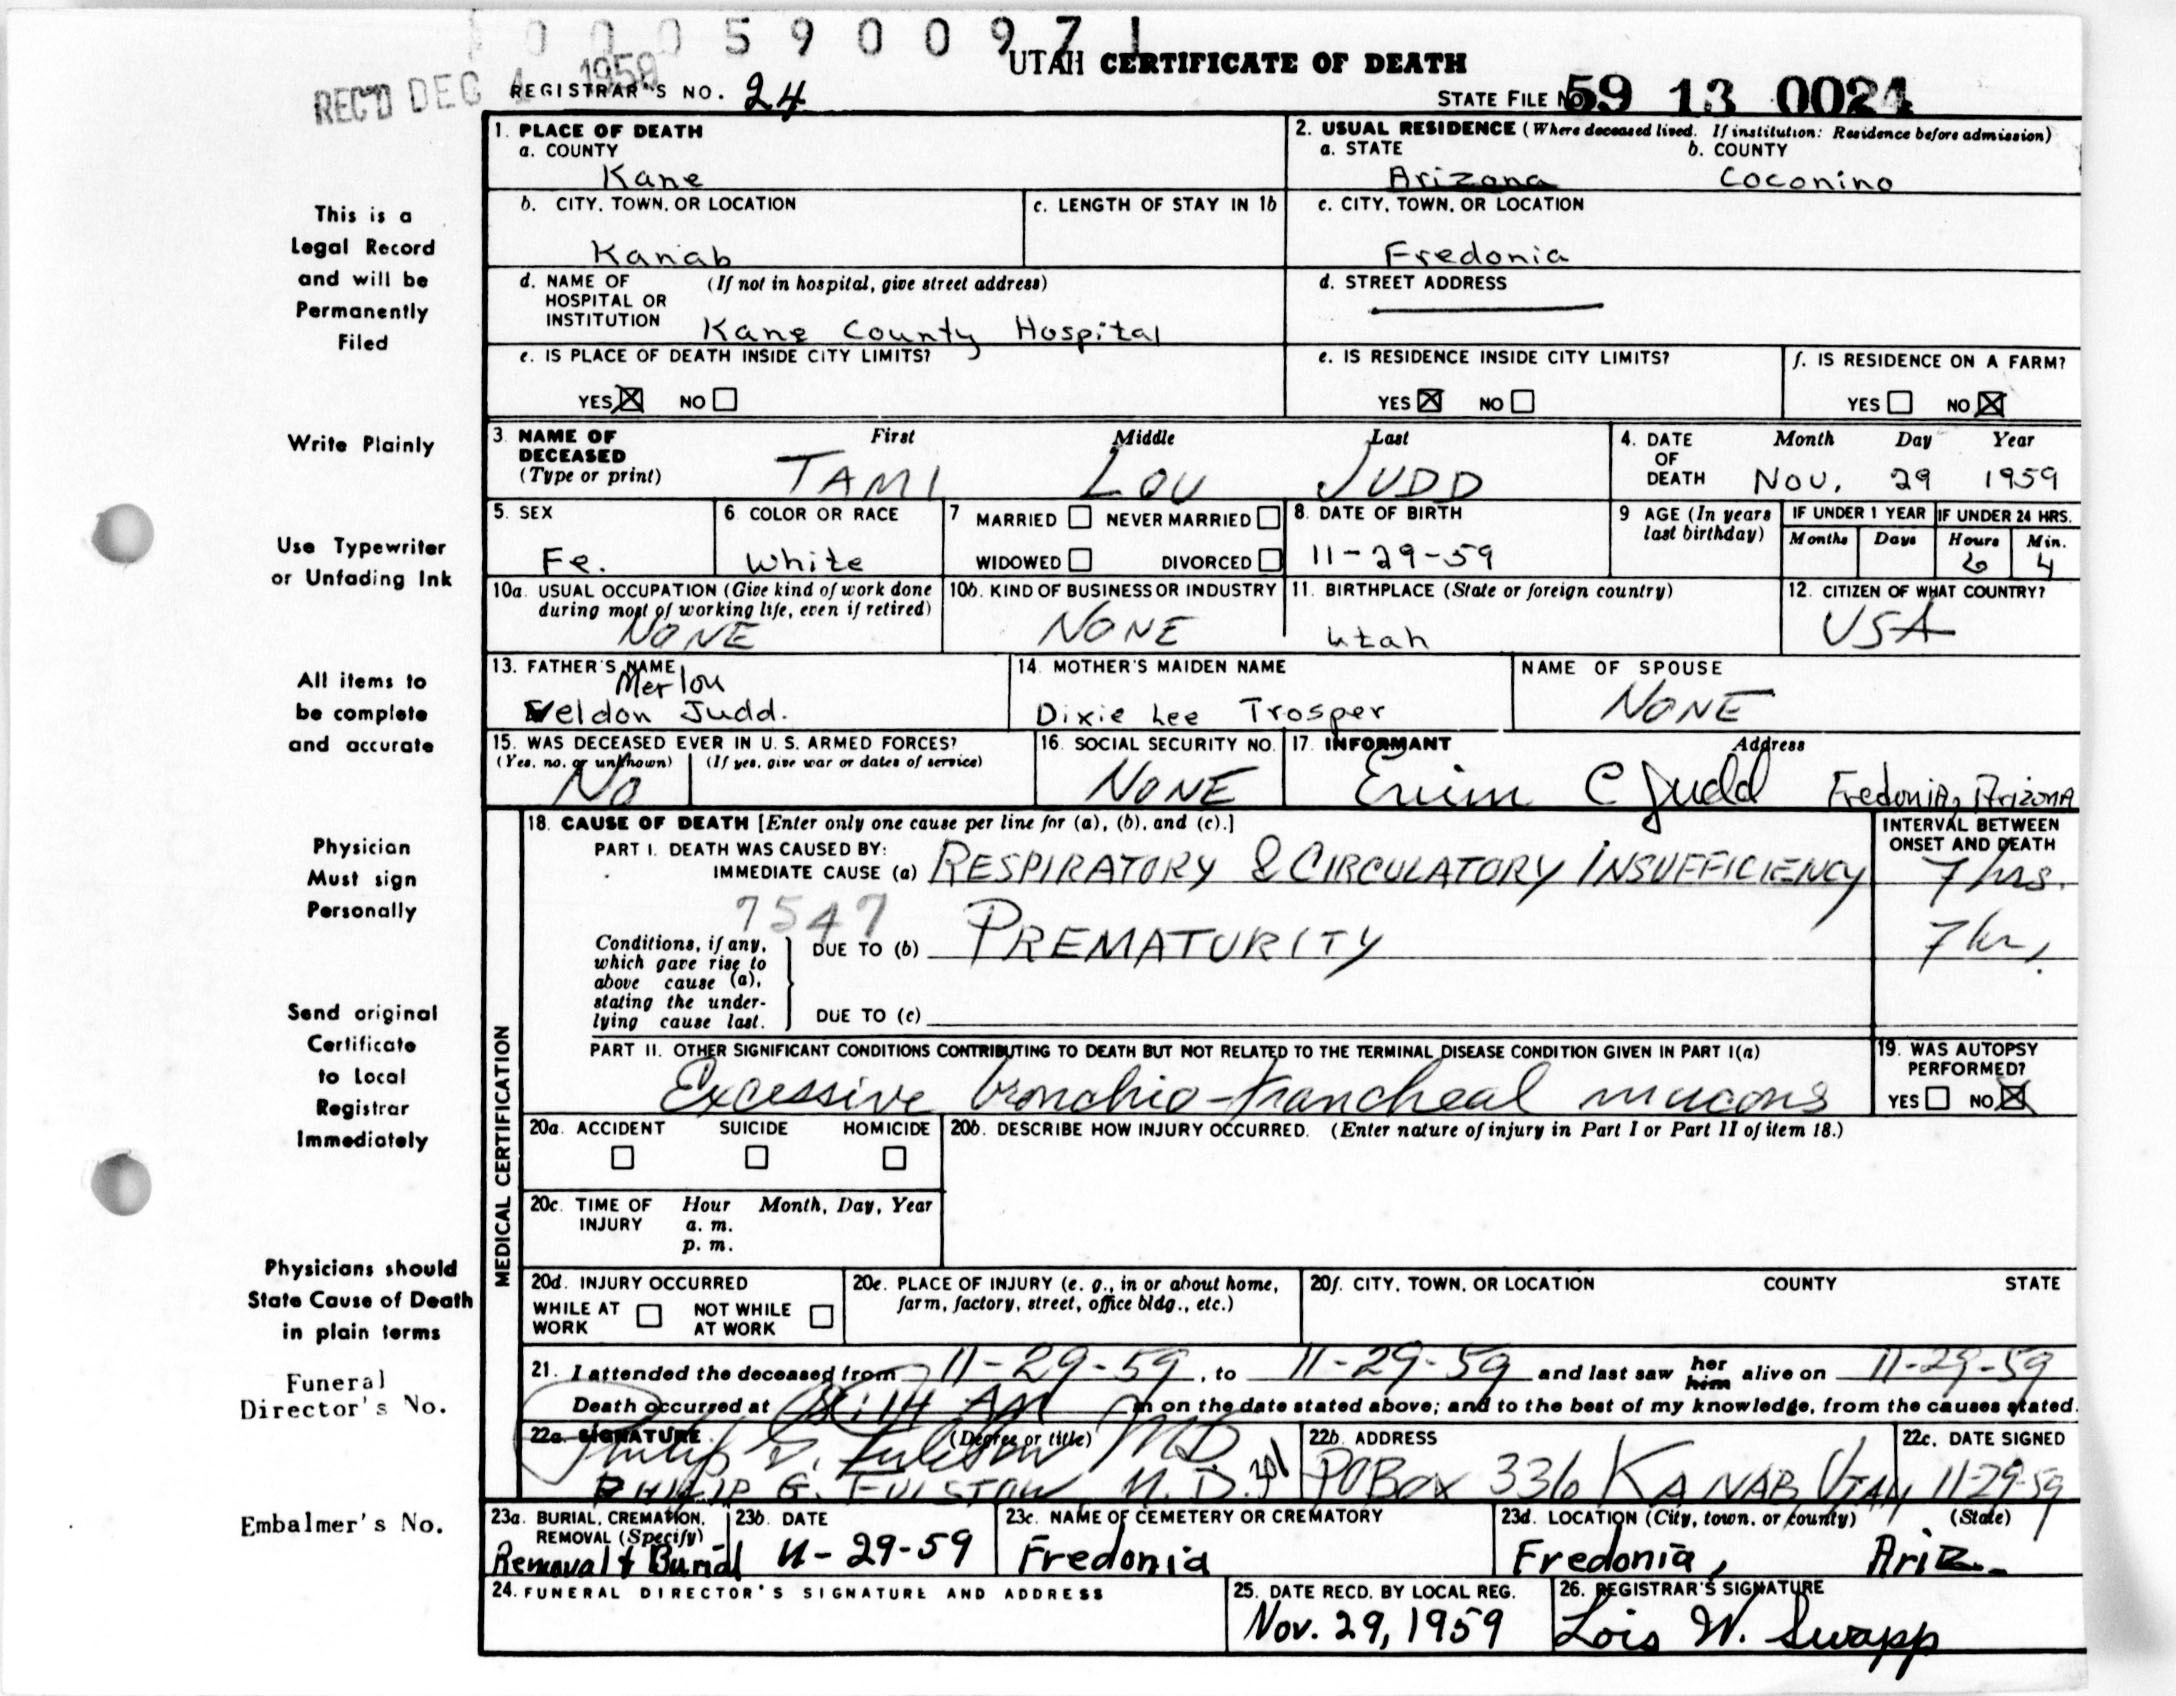 0 0 0 5 9 0 0 9 7 1
UTAH CERTIFICATE OF DEATH
REC'D DEC 4 1959
REGISTRAR'S NO. 24
STATE FILE NO. 59 13 0024
1. PLACE OF DEATH
a. COUNTY
Kane
2. USUAL RESIDENCE (Where deceased lived. If institution: Residence before admission)
a. STATE b. COUNTY
Arizona Coconino
b. CITY, TOWN, OR LOCATION
Kanab
c. LENGTH OF STAY IN 1b
c. CITY, TOWN, OR LOCATION
Fredonia
d. NAME OF (If not in hospital, give street address)
HOSPITAL OR
INSTITUTION Kane County Hospital
d. STREET ADDRESS
e. IS PLACE OF DEATH INSIDE CITY LIMITS?
YES ☒ NO ☐
e. IS RESIDENCE INSIDE CITY LIMITS?
YES ☒ NO ☐
f. IS RESIDENCE ON A FARM?
YES ☐ NO ☒
This is a
Legal Record
and will be
Permanently
Filed
Write Plainly
3. NAME OF First Middle Last
DECEASED
(Type or print) TAMI LOU JUDD
4. DATE Month Day Year
OF
DEATH Nov. 29 1959
5. SEX
Fe.
6. COLOR OR RACE
White
7 MARRIED ☐ NEVER MARRIED ☐
WIDOWED ☐ DIVORCED ☐
8. DATE OF BIRTH
11-29-59
9 AGE (In years
last birthday)
IF UNDER 1 YEAR
Months Days
IF UNDER 24 HRS.
Hours Min.
6 4
Use Typewriter
or Unfading Ink
10a. USUAL OCCUPATION (Give kind of work done
during most of working life, even if retired)
NONE
10b. KIND OF BUSINESS OR INDUSTRY
NONE
11. BIRTHPLACE (State or foreign country)
Utah
12. CITIZEN OF WHAT COUNTRY?
USA
All items to
be complete
and accurate
13. FATHER'S NAME
Merlou
Veldon Judd.
14. MOTHER'S MAIDEN NAME
Dixie Lee Trosper
NAME OF SPOUSE
NONE
15. WAS DECEASED EVER IN U. S. ARMED FORCES?
(Yes, no, or unknown) (If yes, give war or dates of service)
No
16. SOCIAL SECURITY NO.
NONE
17. INFORMANT Address
C Judd Fredonia, Arizona
Physician
Must sign
Personally
MEDICAL CERTIFICATION
18. CAUSE OF DEATH [Enter only one cause per line for (a), (b), and (c).]
PART I. DEATH WAS CAUSED BY:
IMMEDIATE CAUSE (a) RESPIRATORY & CIRCULATORY INSUFFICIENCY
INTERVAL BETWEEN
ONSET AND DEATH
7 hrs.
7547
Conditions, if any,
which gave rise to
above cause (a),
stating the under-
lying cause last.
DUE TO (b) PREMATURITY
7 hr,
DUE TO (c)
Send original
Certificate
to Local
Registrar
Immediately
PART II. OTHER SIGNIFICANT CONDITIONS CONTRIBUTING TO DEATH BUT NOT RELATED TO THE TERMINAL DISEASE CONDITION GIVEN IN PART I(a)
Excessive bronchio-trancheal mucous
19. WAS AUTOPSY
PERFORMED?
YES ☐ NO ☒
20a. ACCIDENT SUICIDE HOMICIDE
☐ ☐ ☐
20b. DESCRIBE HOW INJURY OCCURRED. (Enter nature of injury in Part I or Part II of item 18.)
20c. TIME OF Hour Month, Day, Year
INJURY a. m.
p. m.
20d. INJURY OCCURRED
WHILE AT ☐ NOT WHILE ☐
WORK AT WORK
20e. PLACE OF INJURY (e. g., in or about home,
farm, factory, street, office bldg., etc.)
20f. CITY, TOWN, OR LOCATION COUNTY STATE
Physicians should
State Cause of Death
in plain terms
21. I attended the deceased from 11-29-59, to 11-29-59 and last saw her him alive on 11-29-59
Death occurred at 8:14 AM m on the date stated above; and to the best of my knowledge, from the causes stated.
22a. SIGNATURE (Degree or title)
Philip G. Fulstow MD
PHILIP G. FULSTOW M.D.
22b. ADDRESS
PO Box 336 KANAB, UTAH
22c. DATE SIGNED
11-29-59
Funeral
Director's No.
Embalmer's No.
23a. BURIAL, CREMATION,
REMOVAL (Specify)
Removal & Burial
23b. DATE
11-29-59
23c. NAME OF CEMETERY OR CREMATORY
Fredonia
23d. LOCATION (City, town, or county) (State)
Fredonia, Ariz.
24. FUNERAL DIRECTOR'S SIGNATURE AND ADDRESS
25. DATE RECD. BY LOCAL REG.
Nov. 29, 1959
26. REGISTRAR'S SIGNATURE
Lois W. Swapp